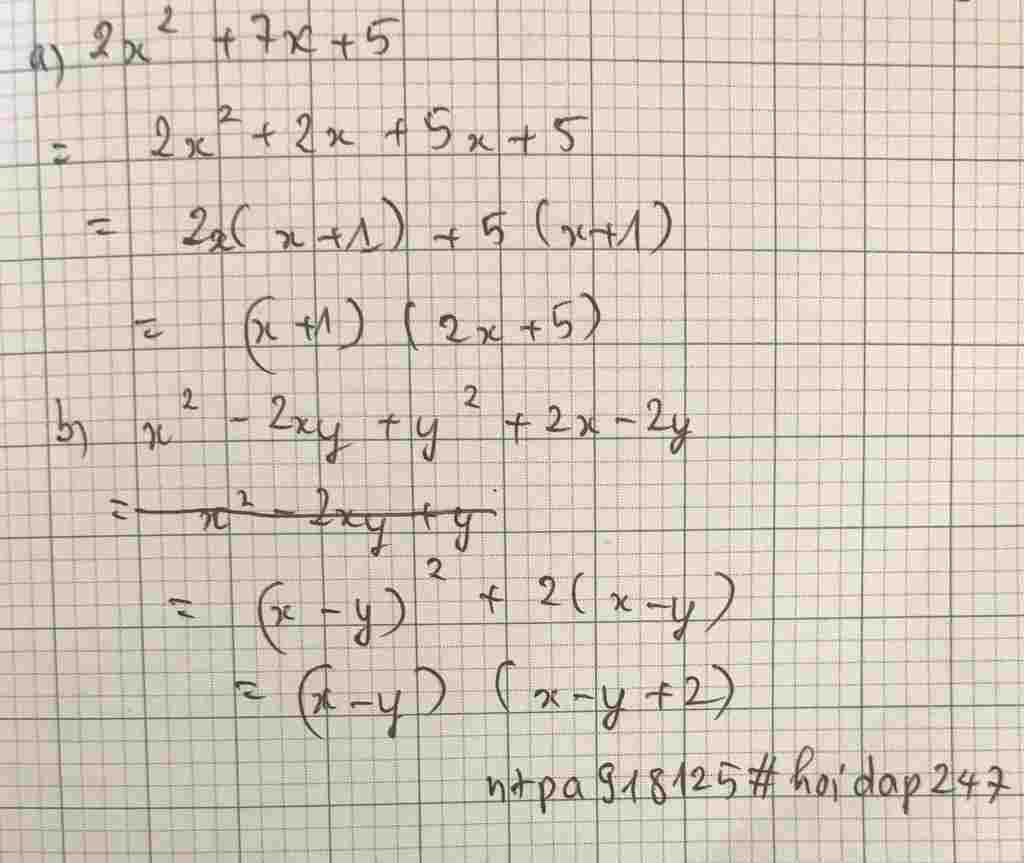 a) 2x² + 7x + 5
= 2x² + 2x + 5x + 5
= 2x(x+1) + 5(x+1)
= (x+1)(2x+5)
b) x² - 2xy + y² + 2x - 2y
= x² - 2xy + y
= (x-y)² + 2(x-y)
= (x-y)(x-y+2)
ntpa918125#hoidap247